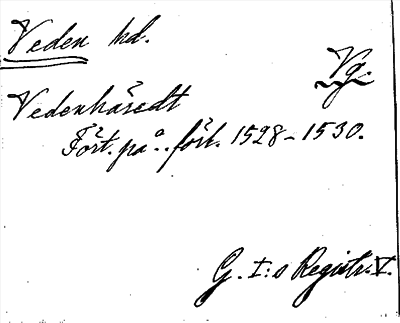 Veden hd.
Vg.
Vedenhäredt
Fört. på .. förl. 1528-1530.
G. I:s Registr. V.